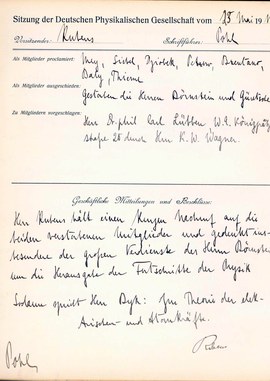 Sitzung der Deutschen Physikalischen Gesellschaft vom 15 Mai 191
Vorsitzender: Rubens Schriftführer: Pohl
Als Mitglieder proclamiert: Mey, Seidel, Brentano,
Baly, Thieme
Als Mitglieder ausgeschieden: Gestorben die Herren Börnstein und
Zu Mitgliedern vorgeschlagen: Herr Dr. phil Carl Lübben W.9. Königgrätzer
straße 28 durch Herrn K. W. Wagner.
Geschäftliche Mitteilungen und Beschlüsse:
Herr Rubens hält einen kurzen Nachruf auf die
beiden verstorbenen Mitglieder und gedenkt ins-
besondere der großen Verdienste des Herrn Börnstein
um die Herausgabe der Fortschritte der Physik
Sodann spricht Herr Byk: Zur Theorie der elek-
trischen und Atomkräfte.
Rubens
Pohl